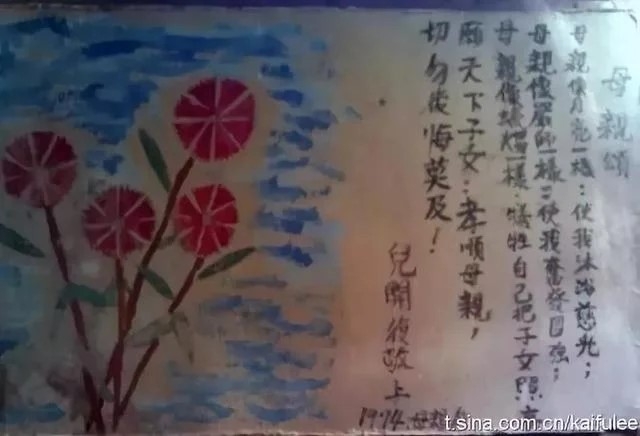 母親頌
母親像月亮一樣:使我沐浴慈光;
母親像嚴師一樣:使我奮發圖強;
母親像蠟燭一樣:犧牲自己把子女照亮
願天下子女:孝順母親,
切勿後悔莫及!
兒開復敬上
1974.母親
t.sina.com.cn/kaifulee